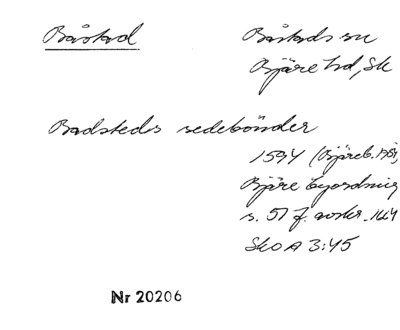 Båstad
Båstads sn
Bjäre hd, Sk
Badsteds sedebönder
1594 (Bjäreb. 1951,
Bjäre byordning
s. 57 f. avskr. 1664
SkOA 3:45
Nr 20206